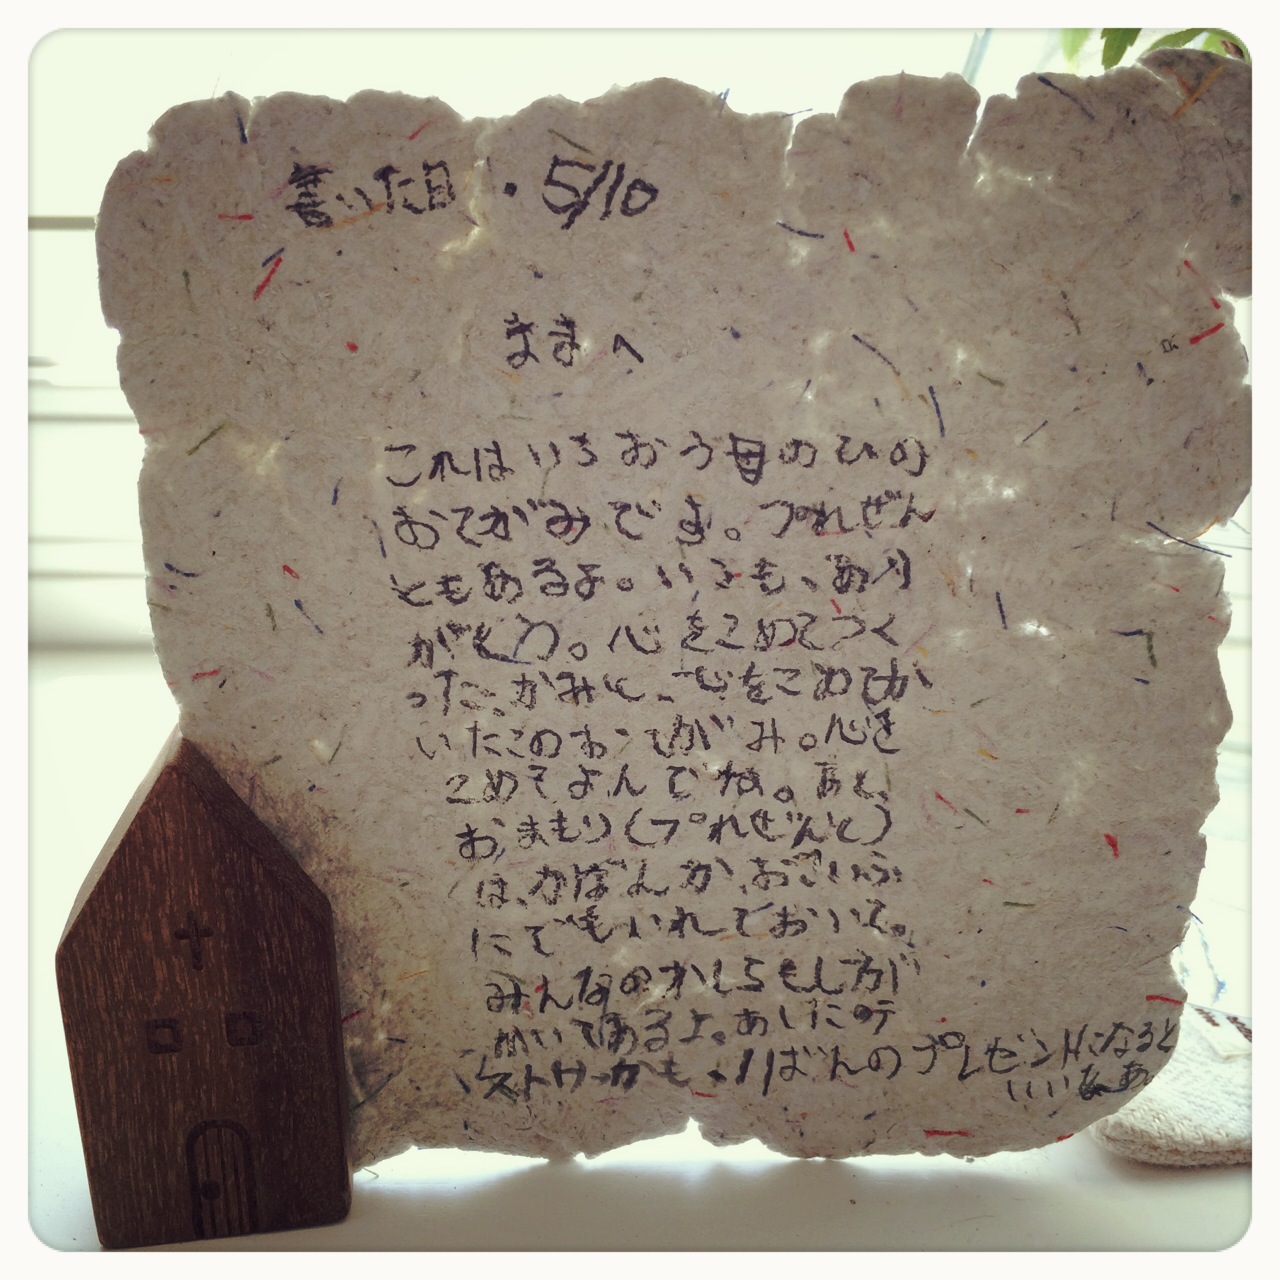 書いた日・5/10
ままへ
これはいちおう母のひの
おてがみです。プれぜん
ともあるよ。いつも、あり
がとう。心をこめてつく
ったかみと、心をこめてか
いたこのおてがみ。心を
こめてよんでね。あと、
おまもり(プれぜんと)
は、かばんか、おさいふ
にでもいれておいて。
みんなの
かいてあるよ。あしたのテ
ストサーかも・いばんのプレゼントになると
いいなあ